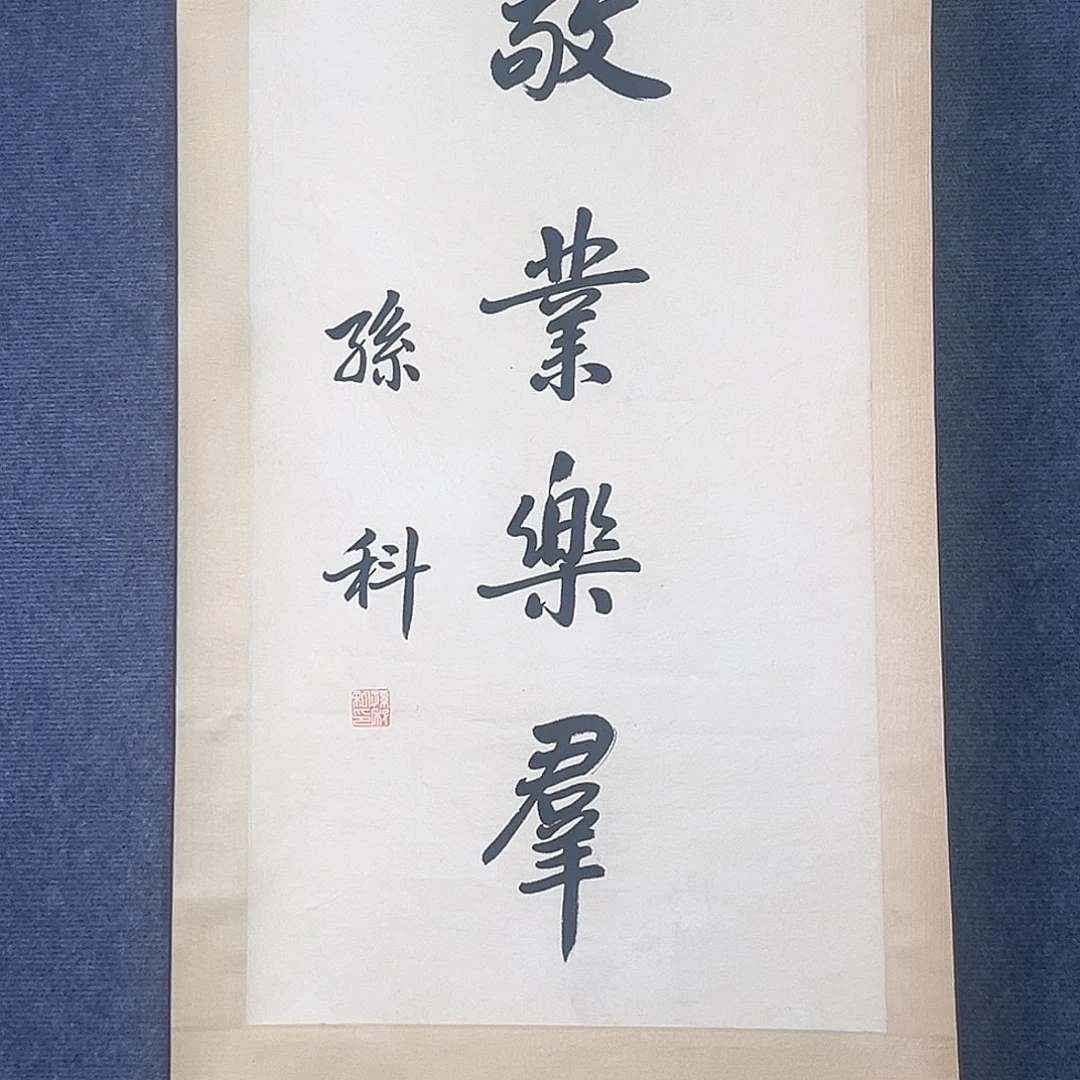 敬業樂羣
孫科